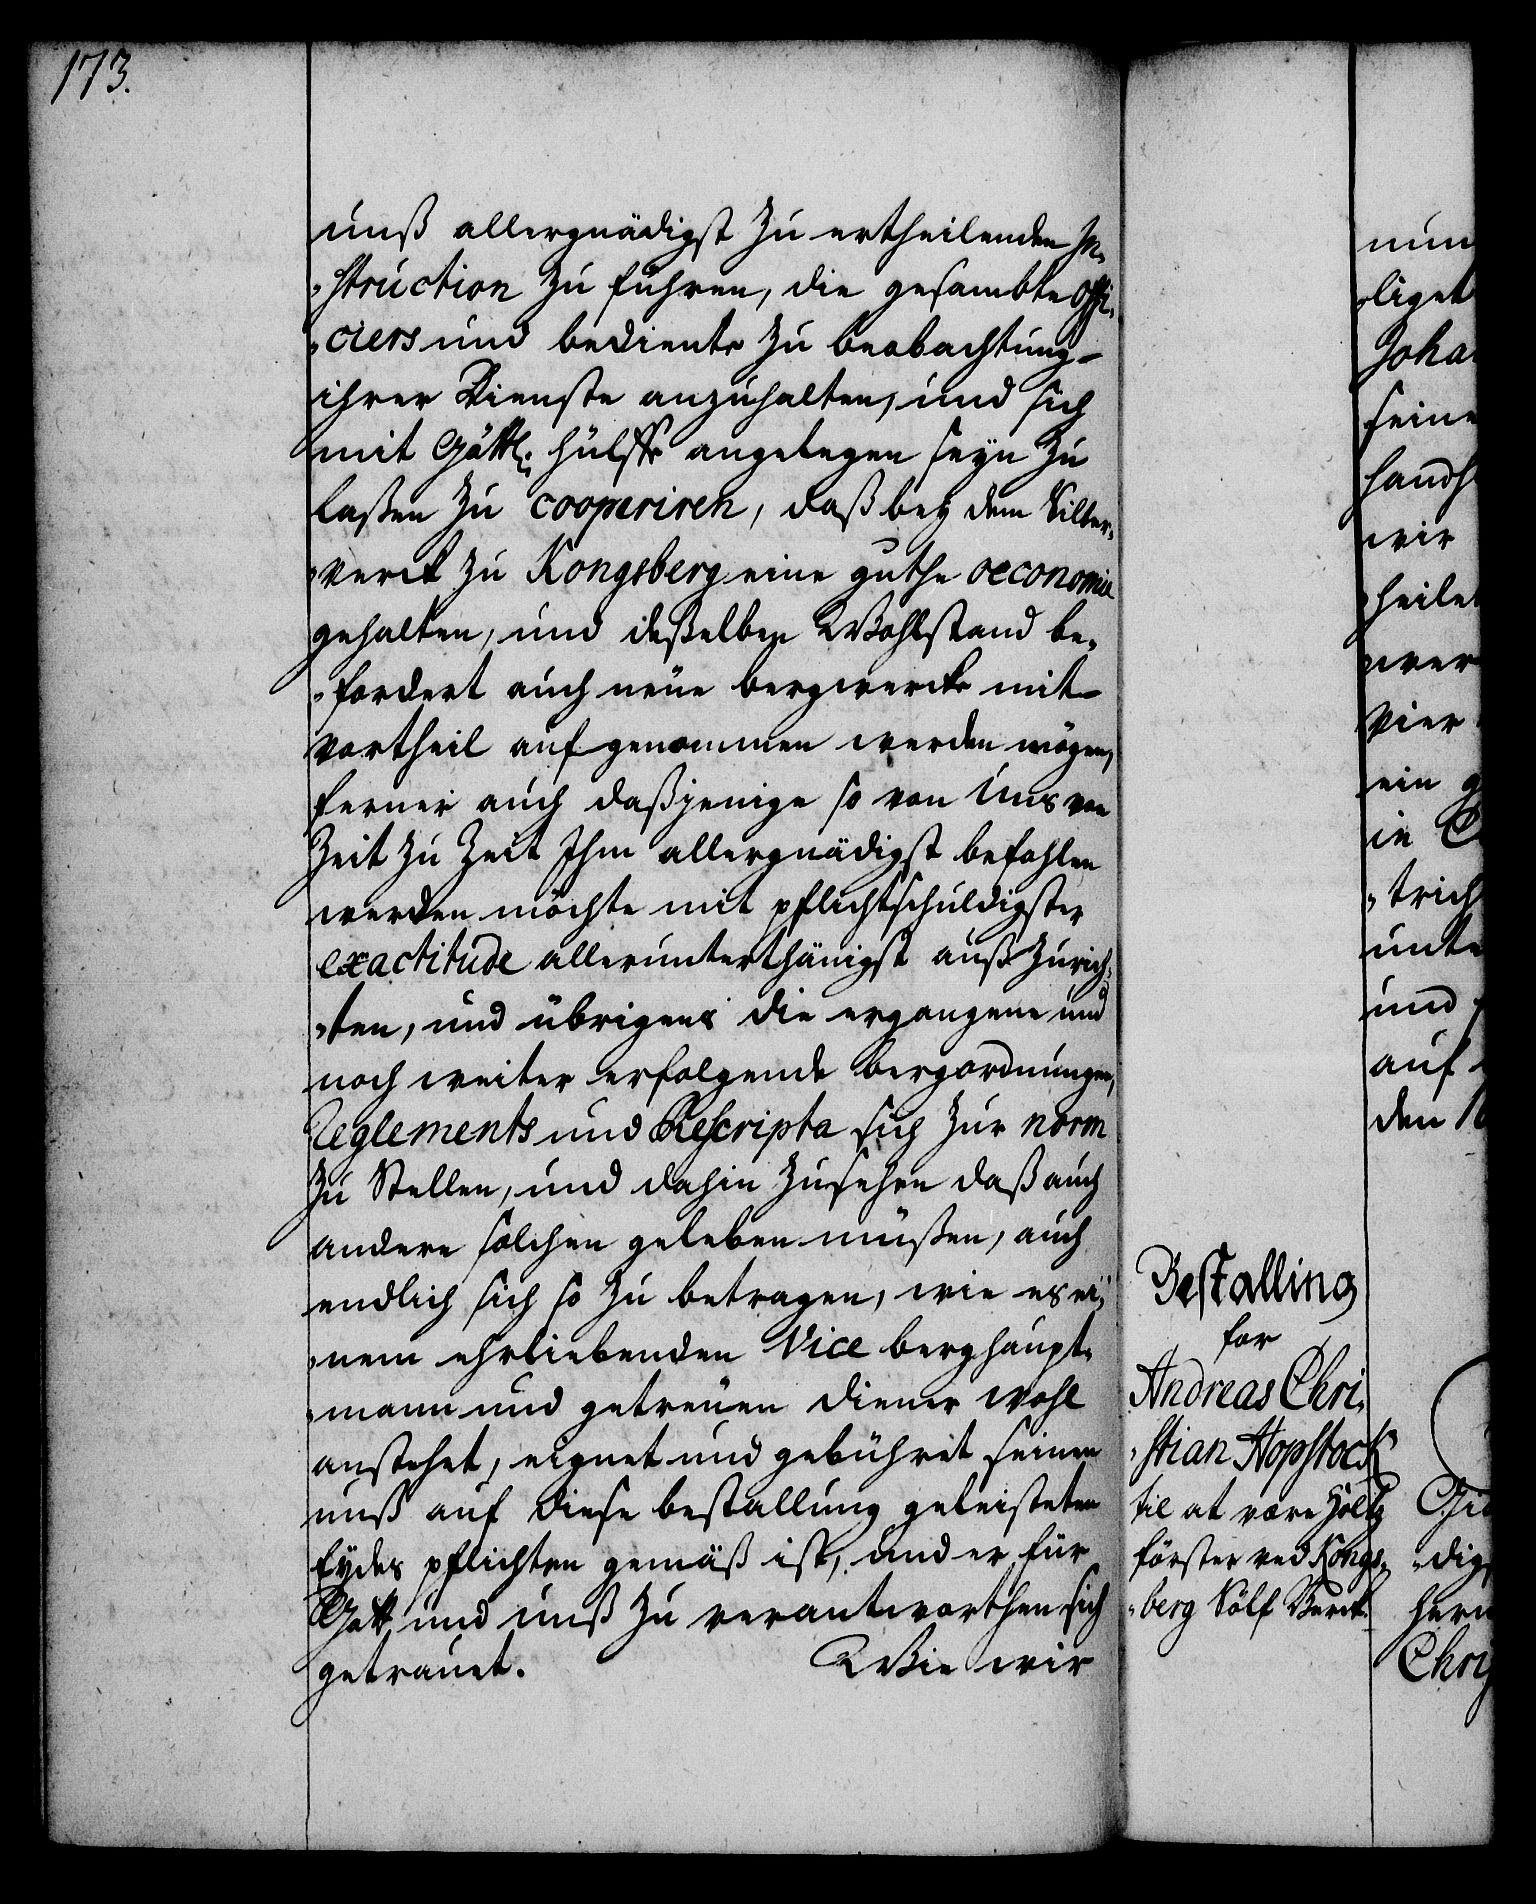 173.
unß allergnädigst zu ertheilenden In,
,struction zu führen, die gesambte Offi,
,ciers und bediente zu beobachtung
ihrer Dienste anzuhalten, und sich
mit Göttl: hülffe angelegen seyn zu
laßen zu cooperiren, daß bey dem Silber,
,werck zu Kongsberg eine guthe oeconomie
gehalten, und deßelben Wohlstand be,
,fordert auch neüe bergwercke mit
vortheil aufgenommen werden mögen,
ferner auch daßjenige so von Uns von
Zeit zu Zeit Ihm allergnädigst befohlen
werden möchte mit pflichtschuldigster
exactitude allerunterthänigst auß zurich,
,ten, und übrigens die ergangene und
noch weiter erfolgende bergordnungen,
Reglements und Rescripta sich zur norm
zu Stellen, und dahin zusehen daß auch
andere solchen geleben müßen, auch
endlich sich so zu betragen, wie es ei,
,nem ehrliebenden Vice berghaupt,
,mann und getreüen diener wohl
anstehet, eignet und gebühret seinen
unß auf diese bestallung geleisteten
Eydes pflichten gemäß ist, und er für
Gott und unß zu verantworthen sich
getrauet. Wie wir
Bestalling
for
Andreas Chri,
,stian Hopstock
til at være Holtz
förster ved Kongs,
,berg Sölf Verck.
nun
,liget
Joha
seine
handh
wir
,heile
,wer
Vier
ein g
in C
,trich
unte
und
auf
den 1
,dig
hern
Chri